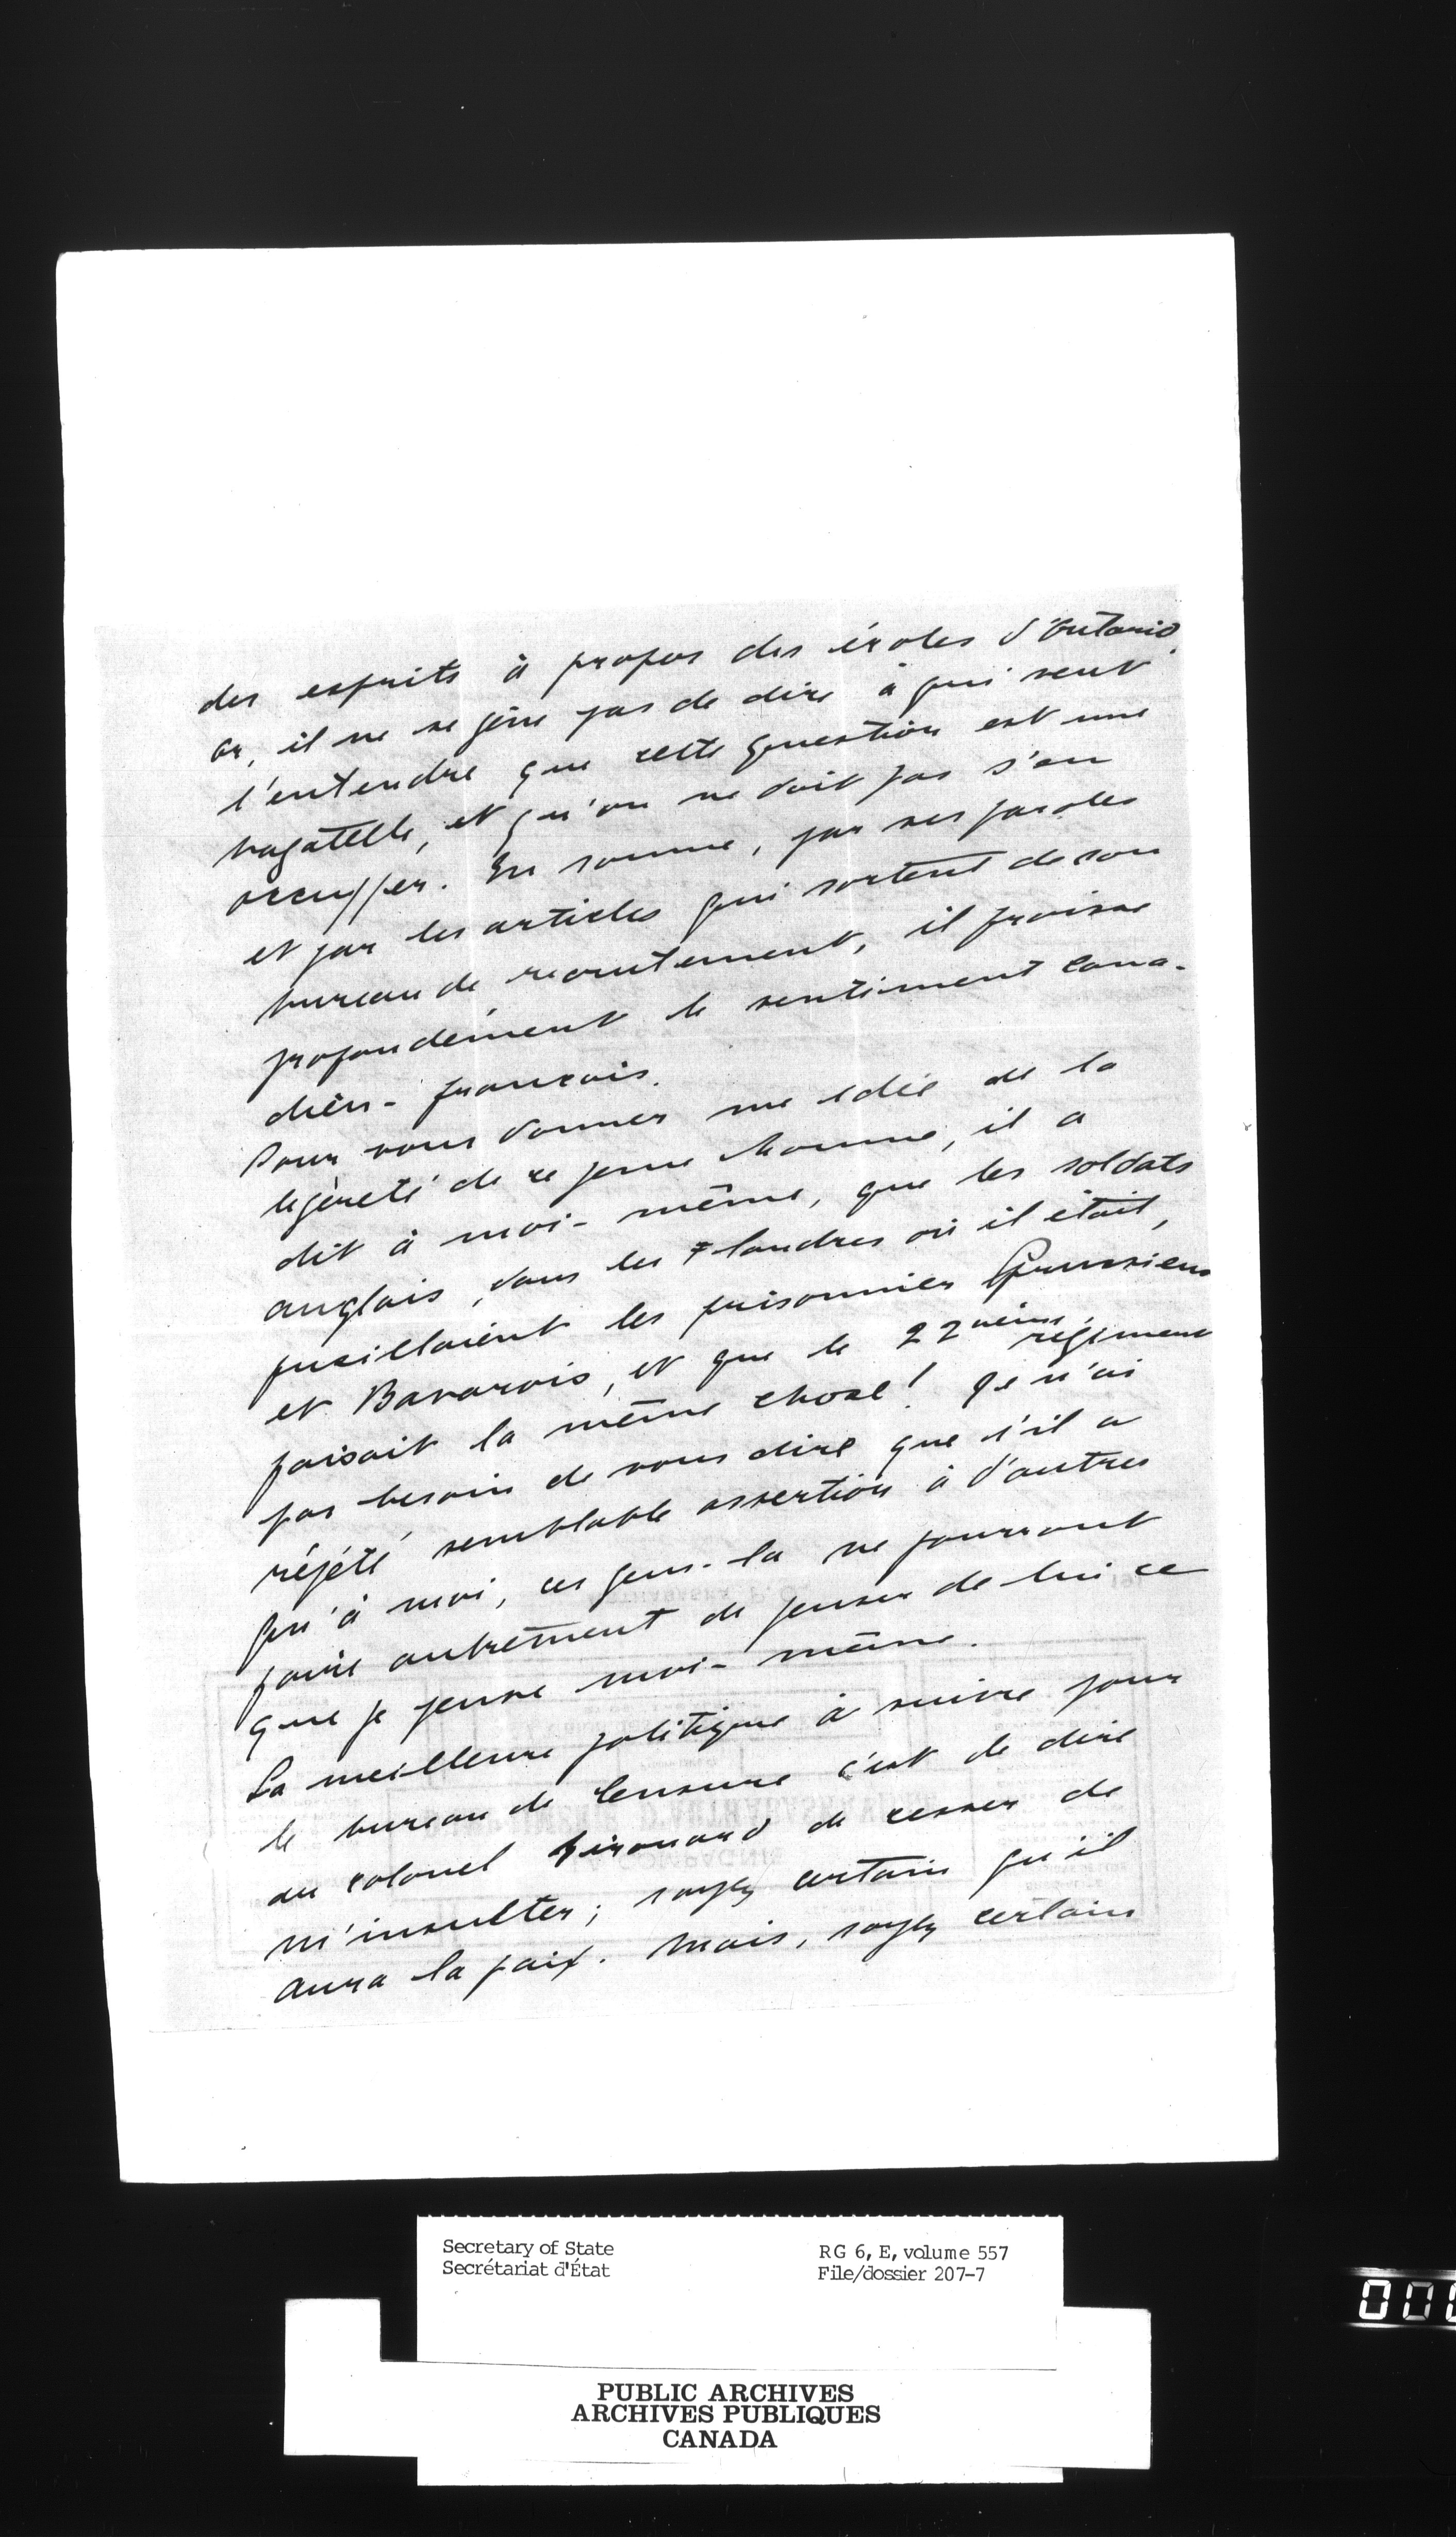 des esprits à propos des écoles d'Ontario.
Or, il ne se gêne pas de dire à qui veut
l'entendre que cette question est une
bagatelle, et qu'on ne doit pas s'en
occupper. En somme, par ses paroles
et par les articles qui sortent de son
bureau de recrutement, il froisse
profondément le sentiment cana-
dien-français.
Pour vous donner une idée de la
légèreté de ce jeune homme, il a
dit à moi-même, que les soldats
anglais, dans les Flandres où il était,
fusillaient les prisonniers Prussiens
et Bavarois, et que le 22ième régiment
faisait la même chose! Je n'ai
pas besoin de vous dire que s'il a
répété semblable assertion à d'autres
qu'à moi, ces gens-la ne pourront
faire autrement de penser de lui ce
que je pense moi-même.
La meilleure politique à suivre pour
le bureau de Censure c'est de dire
au colonel Girouard de cesser de
m'insulter; soyez certain qu'il
aura la paix. Mais, soyez certain
Secretary of State
Secrétariat d'État
RG 6, E, volume 557
File/dossier 207-7
PUBLIC ARCHIVES
ARCHIVES PUBLIQUES
CANADA
000